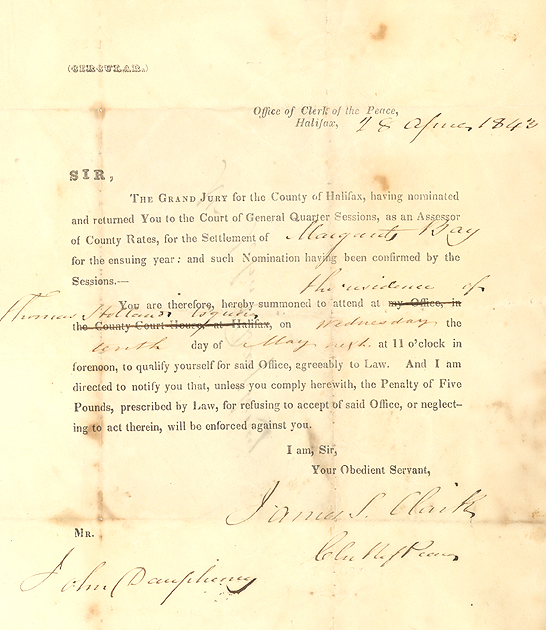 (CIRCULAR.)
Office of Clerk of the Peace,
Halifax, 28 April 1843
SIR,
THE GRAND JURY for the County of Halifax, having nominated
and returned You to the Court of General Quarter Sessions, as an Assessor
of County Rates, for the Settlement of Margarets Bay
for the ensuing year: and such Nomination having been confirmed by the
Sessions.—
the residence of
Thomas Esquire
You are therefore, hereby summoned to attend at my Office, in
the County Court House, at Halifax, on Wednesday the
tenth day of May next. at 11 o'clock in
forenoon, to qualify yourself for said Office, agreeably to Law. And I am
directed to notify you that, unless you comply herewith, the Penalty of Five
Pounds, prescribed by Law, for refusing to accept of said Office, or neglect-
ing to act therein, will be enforced against you.
I am, Sir,
Your Obedient Servant,
James S. Clark
Clk of Peace
MR.
John Dauphinny